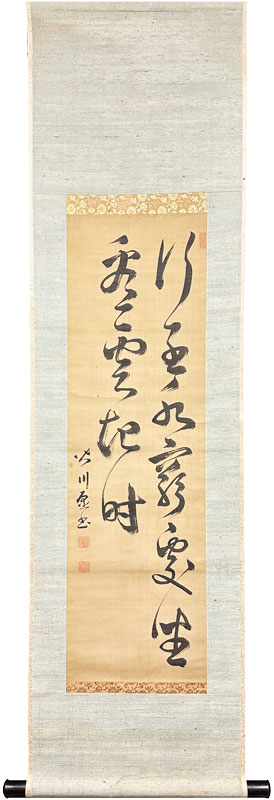 行到水窮處坐
看雲起時
皆川愿書